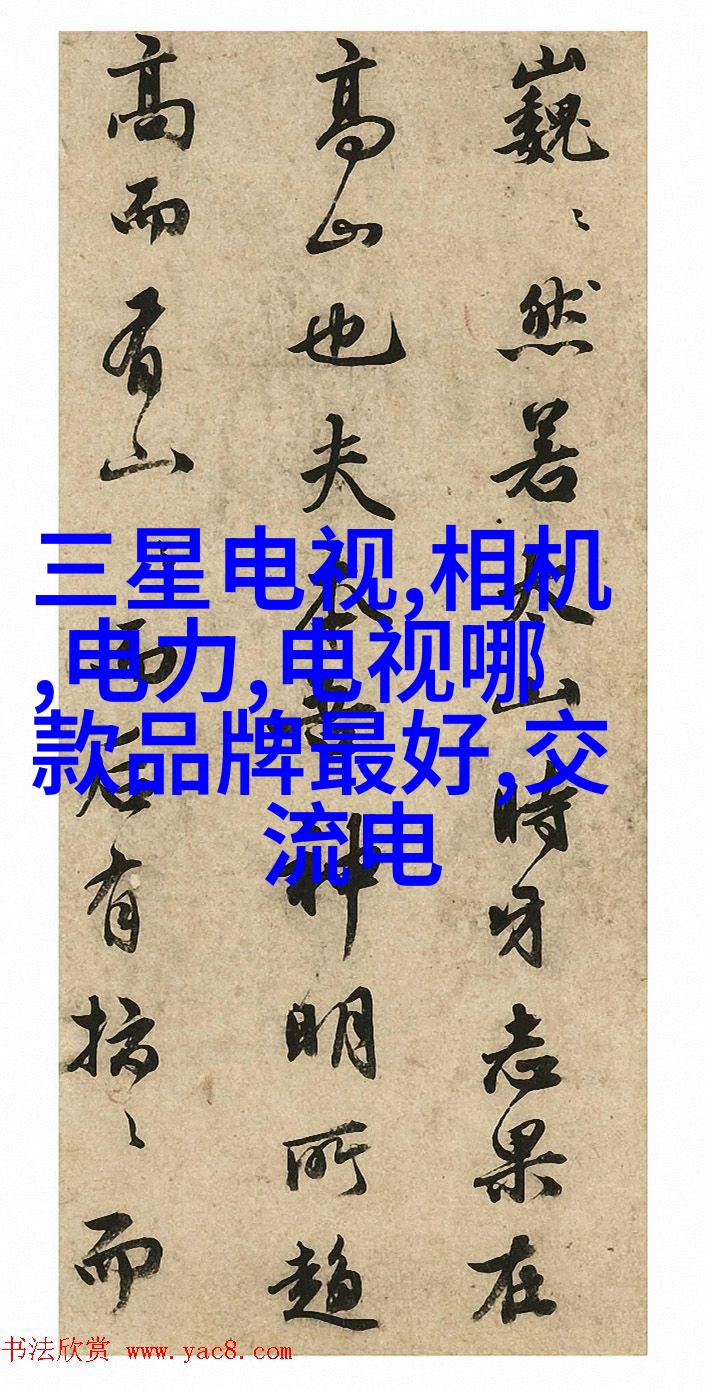 巍〻然若山時牙志果在
高山也夫神明所趨
高而有山而后有搞〻而
三星电视,相机
,电力,电视哪
款品牌最好,交
流电
书法欣赏 www.yac8.com